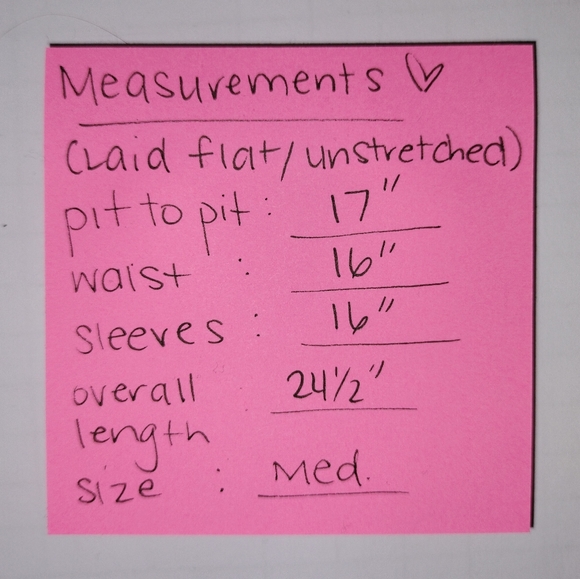 Measurements ♡
(Laid flat/unstretched)
pit to pit : 17"
waist : 16"
sleeves : 16"
overall 24 1/2"
length
size : Med.